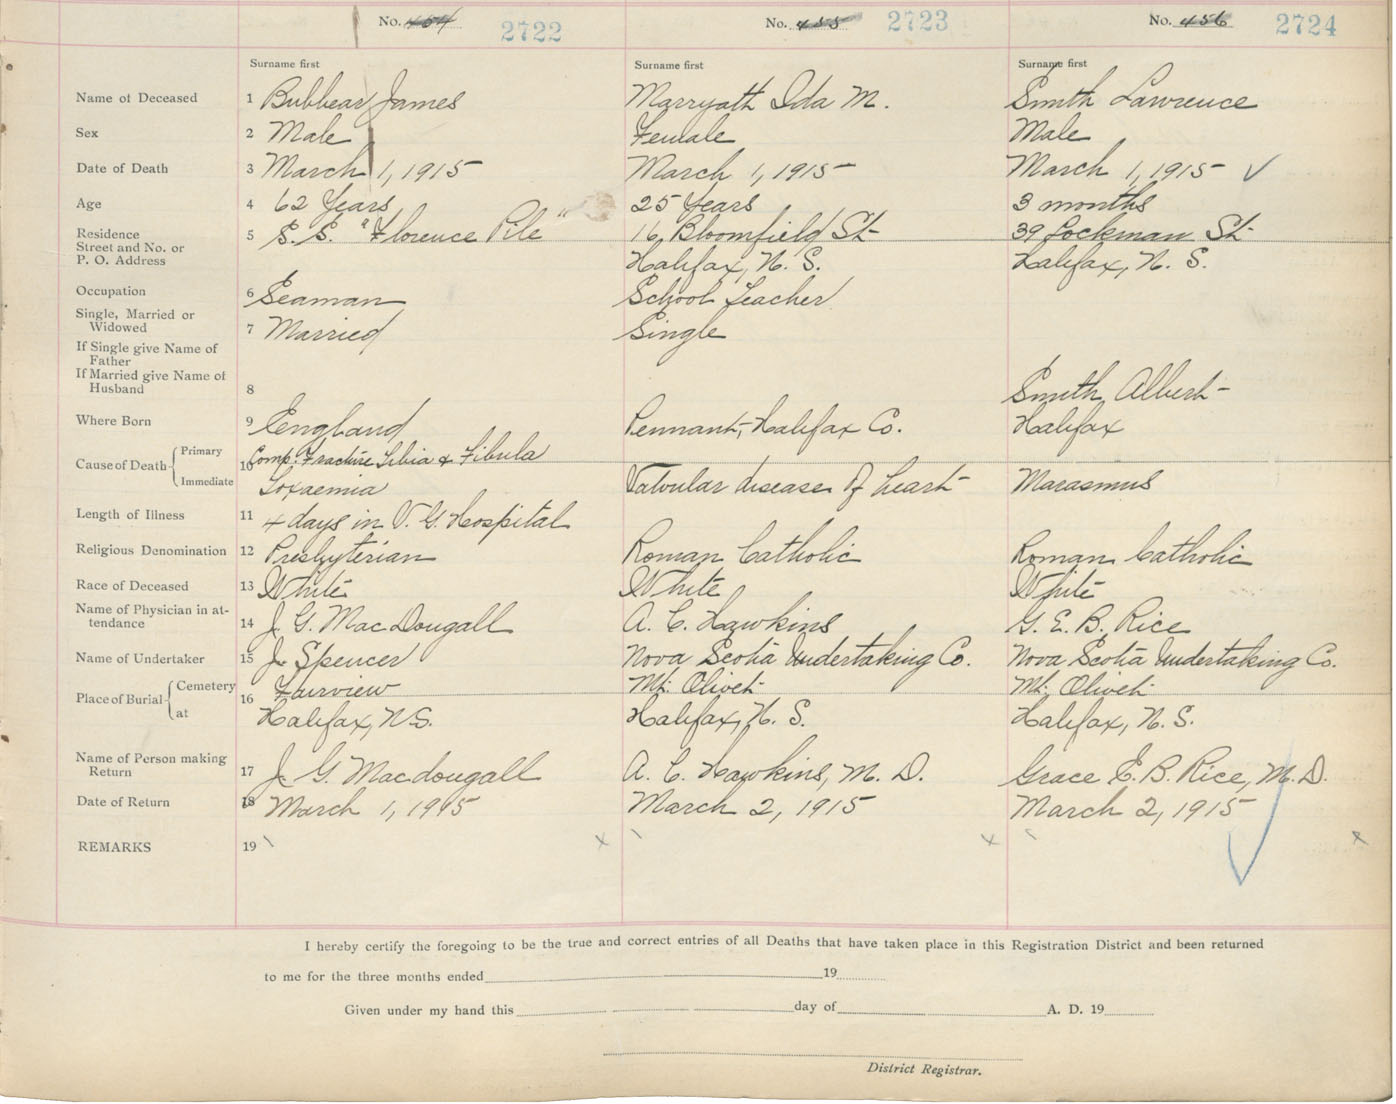 No. 454 2722 No. 455 2723 No. 456 2724
Surname first Surname first Surname first
Name of Deceased 1 Bubbear James Marryath Ida M. Smith Lawrence
Sex 2 Male Female Male
Date of Death 3 March 1, 1915 March 1, 1915 March 1, 1915 ✓
Age 4 62 Years 25 Years 3 months
Residence
Street and No. or
P. O. Address
5 S. S. "Florence Pile" 16 Bloomfield St 39 Lockman St
Halifax, N. S. Halifax, N. S.
Occupation 6 Seaman School Teacher
Single, Married or
Widowed
7 Married Single
If Single give Name of
Father
If Married give Name of
Husband
8 Smith Albert
Where Born 9 England Pennant, Halifax Co. Halifax
Cause of Death Primary 10 Comp. Fracture Tibia & Fibula
Immediate Toxaemia Valvular disease of heart Marasmus
Length of Illness 11 4 days in V. G. Hospital
Religious Denomination 12 Presbyterian Roman Catholic Roman Catholic
Race of Deceased 13 White White White
Name of Physician in at-
tendance
14 J. G. MacDougall A. C. Hawkins G. E. B. Rice
Name of Undertaker 15 J. Spencer Nova Scotia Undertaking Co. Nova Scotia Undertaking Co.
Place of Burial Cemetery 16 Fairview Mt. Olivet Mt. Olivet
at Halifax, N.S. Halifax, N. S. Halifax, N. S.
Name of Person making
Return
17 J. G. Macdougall A. C. Hawkins, M. D. Grace E. B. Rice, M. D.
Date of Return 18 March 1, 1915 March 2, 1915 March 2, 1915
REMARKS 19 x x x
I hereby certify the foregoing to be the true and correct entries of all Deaths that have taken place in this Registration District and been returned
to me for the three months ended 19
Given under my hand this day of A. D. 19
District Registrar.